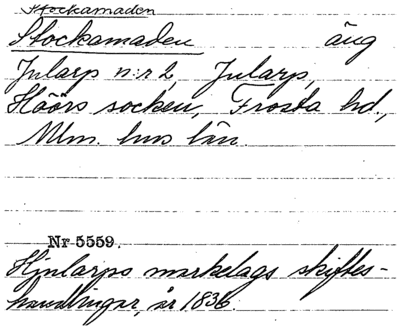 Stockamaden
Stockamaden äng
Jularp n:r 2, Jularp,
Höörs socken, Frosta hd.,
Mlm. hus län.
Nr 5559.
Hjularps markelags skiftes-
handlingar, år 1836.